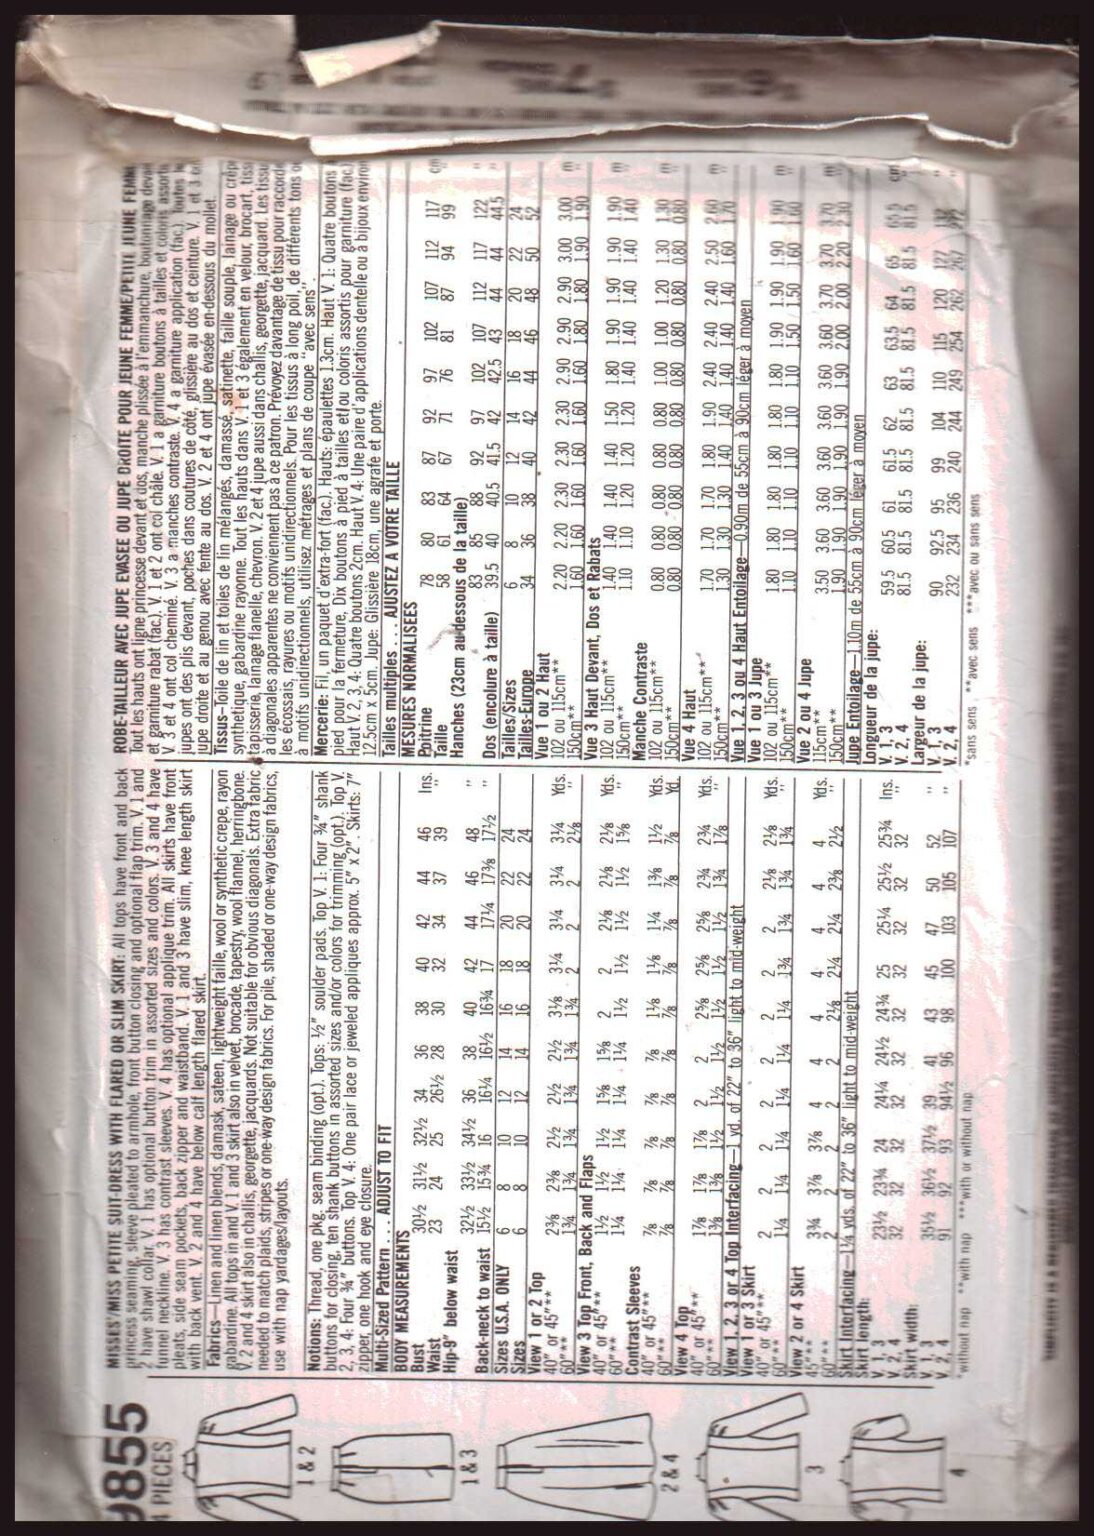 9855
4 PIECES
1 & 2
1 & 3
2 & 4
3
4
MISSES'/MISS PETITE SUIT-DRESS WITH FLARED OR SLIM SKIRT: All tops have front and back
princess seaming, sleeve pleated to armhole, front button closing and optional flap trim. V. 1 and
2 have shawl collar. V. 1 has optional button trim in assorted sizes and colors. V. 3 and 4 have
funnel neckline. V. 3 has contrast sleeves. V. 4 has optional applique trim. All skirts have front
pleats, side seam pockets, back zipper and waistband. V. 1 and 3 have slim, knee length skirt
with back vent. V. 2 and 4 have below calf length flared skirt.
Fabrics—Linen and linen blends, damask, sateen, lightweight faille, wool or synthetic crepe, rayon
gabardine. All tops in and V. 1 and 3 skirt also in velvet, brocade, tapestry, wool flannel, herringbone.
V. 2 and 4 skirt also in challis, georgette, jacquards. Not suitable for obvious diagonals. Extra fabric
needed to match plaids, stripes or one-way design fabrics. For pile, shaded or one-way design fabrics,
use with nap yardages/layouts.
Notions: Thread, one pkg. seam binding (opt.). Tops: ½" soulder pads. Top V. 1: Four ¾" shank
buttons for closing, ten shank buttons in assorted sizes and/or colors for trimming (opt.). Top V.
2, 3, 4: Four ¾" buttons. Top V. 4: One pair lace or jeweled appliques approx. 5" x 2". Skirts: 7"
zipper, one hook and eye closure.
Multi-Sized Pattern . . . ADJUST TO FIT
BODY MEASUREMENTS
Bust 30½ 31½ 32½ 34 36 38 40 42 44 46 Ins.
Waist 23 24 25 26½ 28 30 32 34 37 39 "
Hip-9" below waist
32½ 33½ 34½ 36 38 40 42 44 46 48 "
Back-neck to waist 15½ 15¾ 16 16¼ 16½ 16¾ 17 17¼ 17⅜ 17½ "
Sizes U.S.A. ONLY 6 8 10 12 14 16 18 20 22 24
Sizes 6 8 10 12 14 16 18 20 22 24
View 1 or 2 Top
40" or 45"*** 2⅜ 2⅜ 2½ 2½ 2½ 3⅛ 3¼ 3¼ 3¼ 3¼ Yds.
60"** 1¾ 1¾ 1¾ 1¾ 1¾ 1¾ 2 2 2 2⅛ "
View 3 Top Front, Back and Flaps
40" or 45"*** 1½ 1½ 1½ 1⅝ 1⅝ 2 2 2⅛ 2⅛ 2⅛ Yds.
60"** 1¼ 1¼ 1¼ 1¼ 1¼ 1½ 1½ 1½ 1½ 1⅝ "
Contrast Sleeves
40" or 45"*** ⅞ ⅞ ⅞ ⅞ ⅞ 1⅛ 1⅛ 1¼ 1⅜ 1½ Yds.
60"** ⅞ ⅞ ⅞ ⅞ ⅞ ⅞ ⅞ ⅞ ⅞ ⅞ Yd.
View 4 Top
40" or 45"*** 1⅞ 1⅞ 1⅞ 2 2 2⅝ 2⅝ 2⅝ 2¾ 2¾ Yds.
60"** 1⅜ 1⅜ 1½ 1½ 1½ 1½ 1½ 1½ 1¾ 1⅞ "
View 1, 2, 3 or 4 Top Interfacing—1 yd. of 22" to 36" light to mid-weight
View 1 or 3 Skirt
40" or 45"*** 2 2 2 2 2 2 2 2 2⅛ 2⅛ Yds.
60"** 1¼ 1¼ 1¼ 1¼ 1¼ 1¼ 1¾ 1¾ 1¾ 1¾ "
View 2 or 4 Skirt
45"*** 3¾ 3⅞ 3⅞ 4 4 4 4 4 4 4 Yds.
60"** 2 2 2 2 2 2⅛ 2¼ 2¼ 2⅜ 2½ "
Skirt Interfacing—1¼ yds. of 22" to 36" light to mid-weight
Skirt length:
V. 1, 3 23½ 23¾ 24 24¼ 24½ 24¾ 25 25¼ 25½ 25¾ Ins.
V. 2, 4 32 32 32 32 32 32 32 32 32 32 "
Skirt width:
V. 1, 3 35½ 36½ 37½ 39 41 43 45 47 50 52 "
V. 2, 4 91 92 93 94½ 96 98 100 103 105 107 "
*without nap **with nap ***with or without nap
ROBE-TAILLEUR AVEC JUPE EVASEE OU JUPE DROITE POUR JEUNE FEMME/PETITE JEUNE FEMME
Tout les hauts ont ligne princesse devant et dos, manche plissée à l'emmanchure, boutonnage devant
et garniture rabat (fac.). V. 1 et 2 ont col châle. V. 1 a garniture boutons à tailles et coloris assortis
V. 3 et 4 ont col cheminé. V. 3 a manches contraste. V. 4 a garniture application (fac.) Toutes
jupes ont des plis devant, poches dans coutures de côté, glissière au dos et ceinture. V. 1 et 3
jupe droite et au genou avec fente au dos. V. 2 et 4 ont jupe évasée en-dessous du mollet.
Tissus-Toile de lin et toiles de lin mélangés, damassé, satinette, faille souple, lainage ou crêpe
synthétique, gabardine rayonne. Tout les hauts dans V. 1 et 3 également en velour, brocart,
tapisserie, lainage flanelle, chevron. V. 2 et 4 jupe aussi dans challis, georgette, jacquard. Les
à diagonales apparentes ne conviennent pas à ce patron. Prévoyez davantage de tissu pour
les écossais, rayures ou motifs unidirectionnels. Pour les tissus à long poil, de différents tons
à motifs unidirectionnels, utilisez métrages et plans de coupe "avec sens".
Mercerie: Fil, un paquet d'extra-fort (fac.). Hauts: épaulettes 1.3cm. Haut V. 1: Quatre boutons
pied pour la fermeture, Dix boutons à pied à tailles et/ou coloris assortis pour garniture (fac.)
Haut V. 2, 3, 4: Quatre boutons 2cm. Haut V. 4: Une paire d'applications dentelle ou à bijoux environ
12.5cm x 5cm. Jupe: Glissière 18cm, une agrafe et porte.
Tailles multiples . . . AJUSTEZ A VOTRE TAILLE
MESURES NORMALISEES
Poitrine 78 80 83 87 92 97 102 107 112 117 cm
Taille 58 61 64 67 71 76 81 87 94 99 "
Hanches (23cm au-dessous de la taille)
83 85 88 92 97 102 107 112 117 122 "
Dos (encolure à taille) 39.5 40 40.5 41.5 42 42.5 43 44 44 44.5 "
Tailles/Sizes 6 8 10 12 14 16 18 20 22 24
Tailles-Europe 34 36 38 40 42 44 46 48 50 52
Vue 1 ou 2 Haut
102 ou 115cm** 2.20 2.20 2.30 2.30 2.30 2.90 2.90 2.90 3.00 3.00 m
150cm** 1.60 1.60 1.60 1.60 1.60 1.60 1.80 1.80 1.90 1.90 "
Vue 3 Haut Devant, Dos et Rabats
102 ou 115cm** 1.40 1.40 1.40 1.40 1.50 1.80 1.90 1.90 1.90 1.90 m
150cm** 1.10 1.10 1.20 1.20 1.20 1.40 1.40 1.40 1.40 1.40 "
Manche Contraste
102 ou 115cm** 0.80 0.80 0.80 0.80 0.80 1.00 1.00 1.20 1.30 1.30 m
150cm** 0.80 0.80 0.80 0.80 0.80 0.80 0.80 0.80 0.80 0.80 "
Vue 4 Haut
102 ou 115cm** 1.70 1.70 1.70 1.80 1.90 2.40 2.40 2.40 2.50 2.60 m
150cm** 1.30 1.30 1.30 1.40 1.40 1.40 1.40 1.40 1.60 1.70 "
Vue 1, 2, 3 ou 4 Haut Entoilage—0.90m de 55cm à 90cm léger à moyen
Vue 1 ou 3 Jupe
102 ou 115cm** 1.80 1.80 1.80 1.80 1.80 1.80 1.90 1.90 1.90 1.90 m
150cm** 1.10 1.10 1.10 1.10 1.10 1.10 1.50 1.50 1.60 1.60 "
Vue 2 ou 4 Jupe
115cm** 3.50 3.60 3.60 3.60 3.60 3.60 3.60 3.70 3.70 3.70 m
150cm** 1.90 1.90 1.90 1.90 1.90 1.90 2.00 2.00 2.20 2.30 "
Jupe Entoilage—1.10m de 55cm à 90cm léger à moyen
Longueur de la jupe:
V. 1, 3 59.5 60.5 61 61.5 62 63 63.5 64 65 65.5 cm
V. 2, 4 81.5 81.5 81.5 81.5 81.5 81.5 81.5 81.5 81.5 81.5 "
Largeur de la jupe:
V. 1, 3 90 92.5 95 99 104 110 115 120 127 132 "
V. 2, 4 232 234 236 240 244 249 254 262 267 272 "
*sans sens **avec sens ***avec ou sans sens